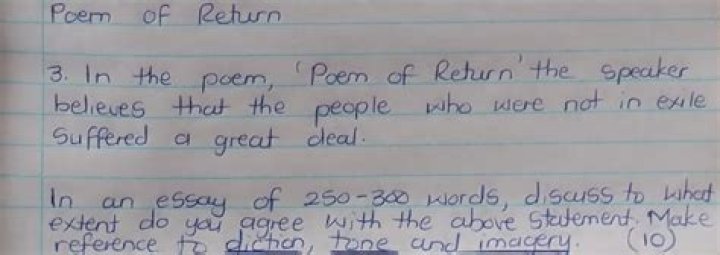 Poem of Return
3. In the poem, 'Poem of Return' the speaker
believes that the people who were not in exile
suffered a great deal.
In an essay of 250-300 words, discuss to what
extent do you agree with the above statement. Make
reference to diction, tone and imagery. (10)